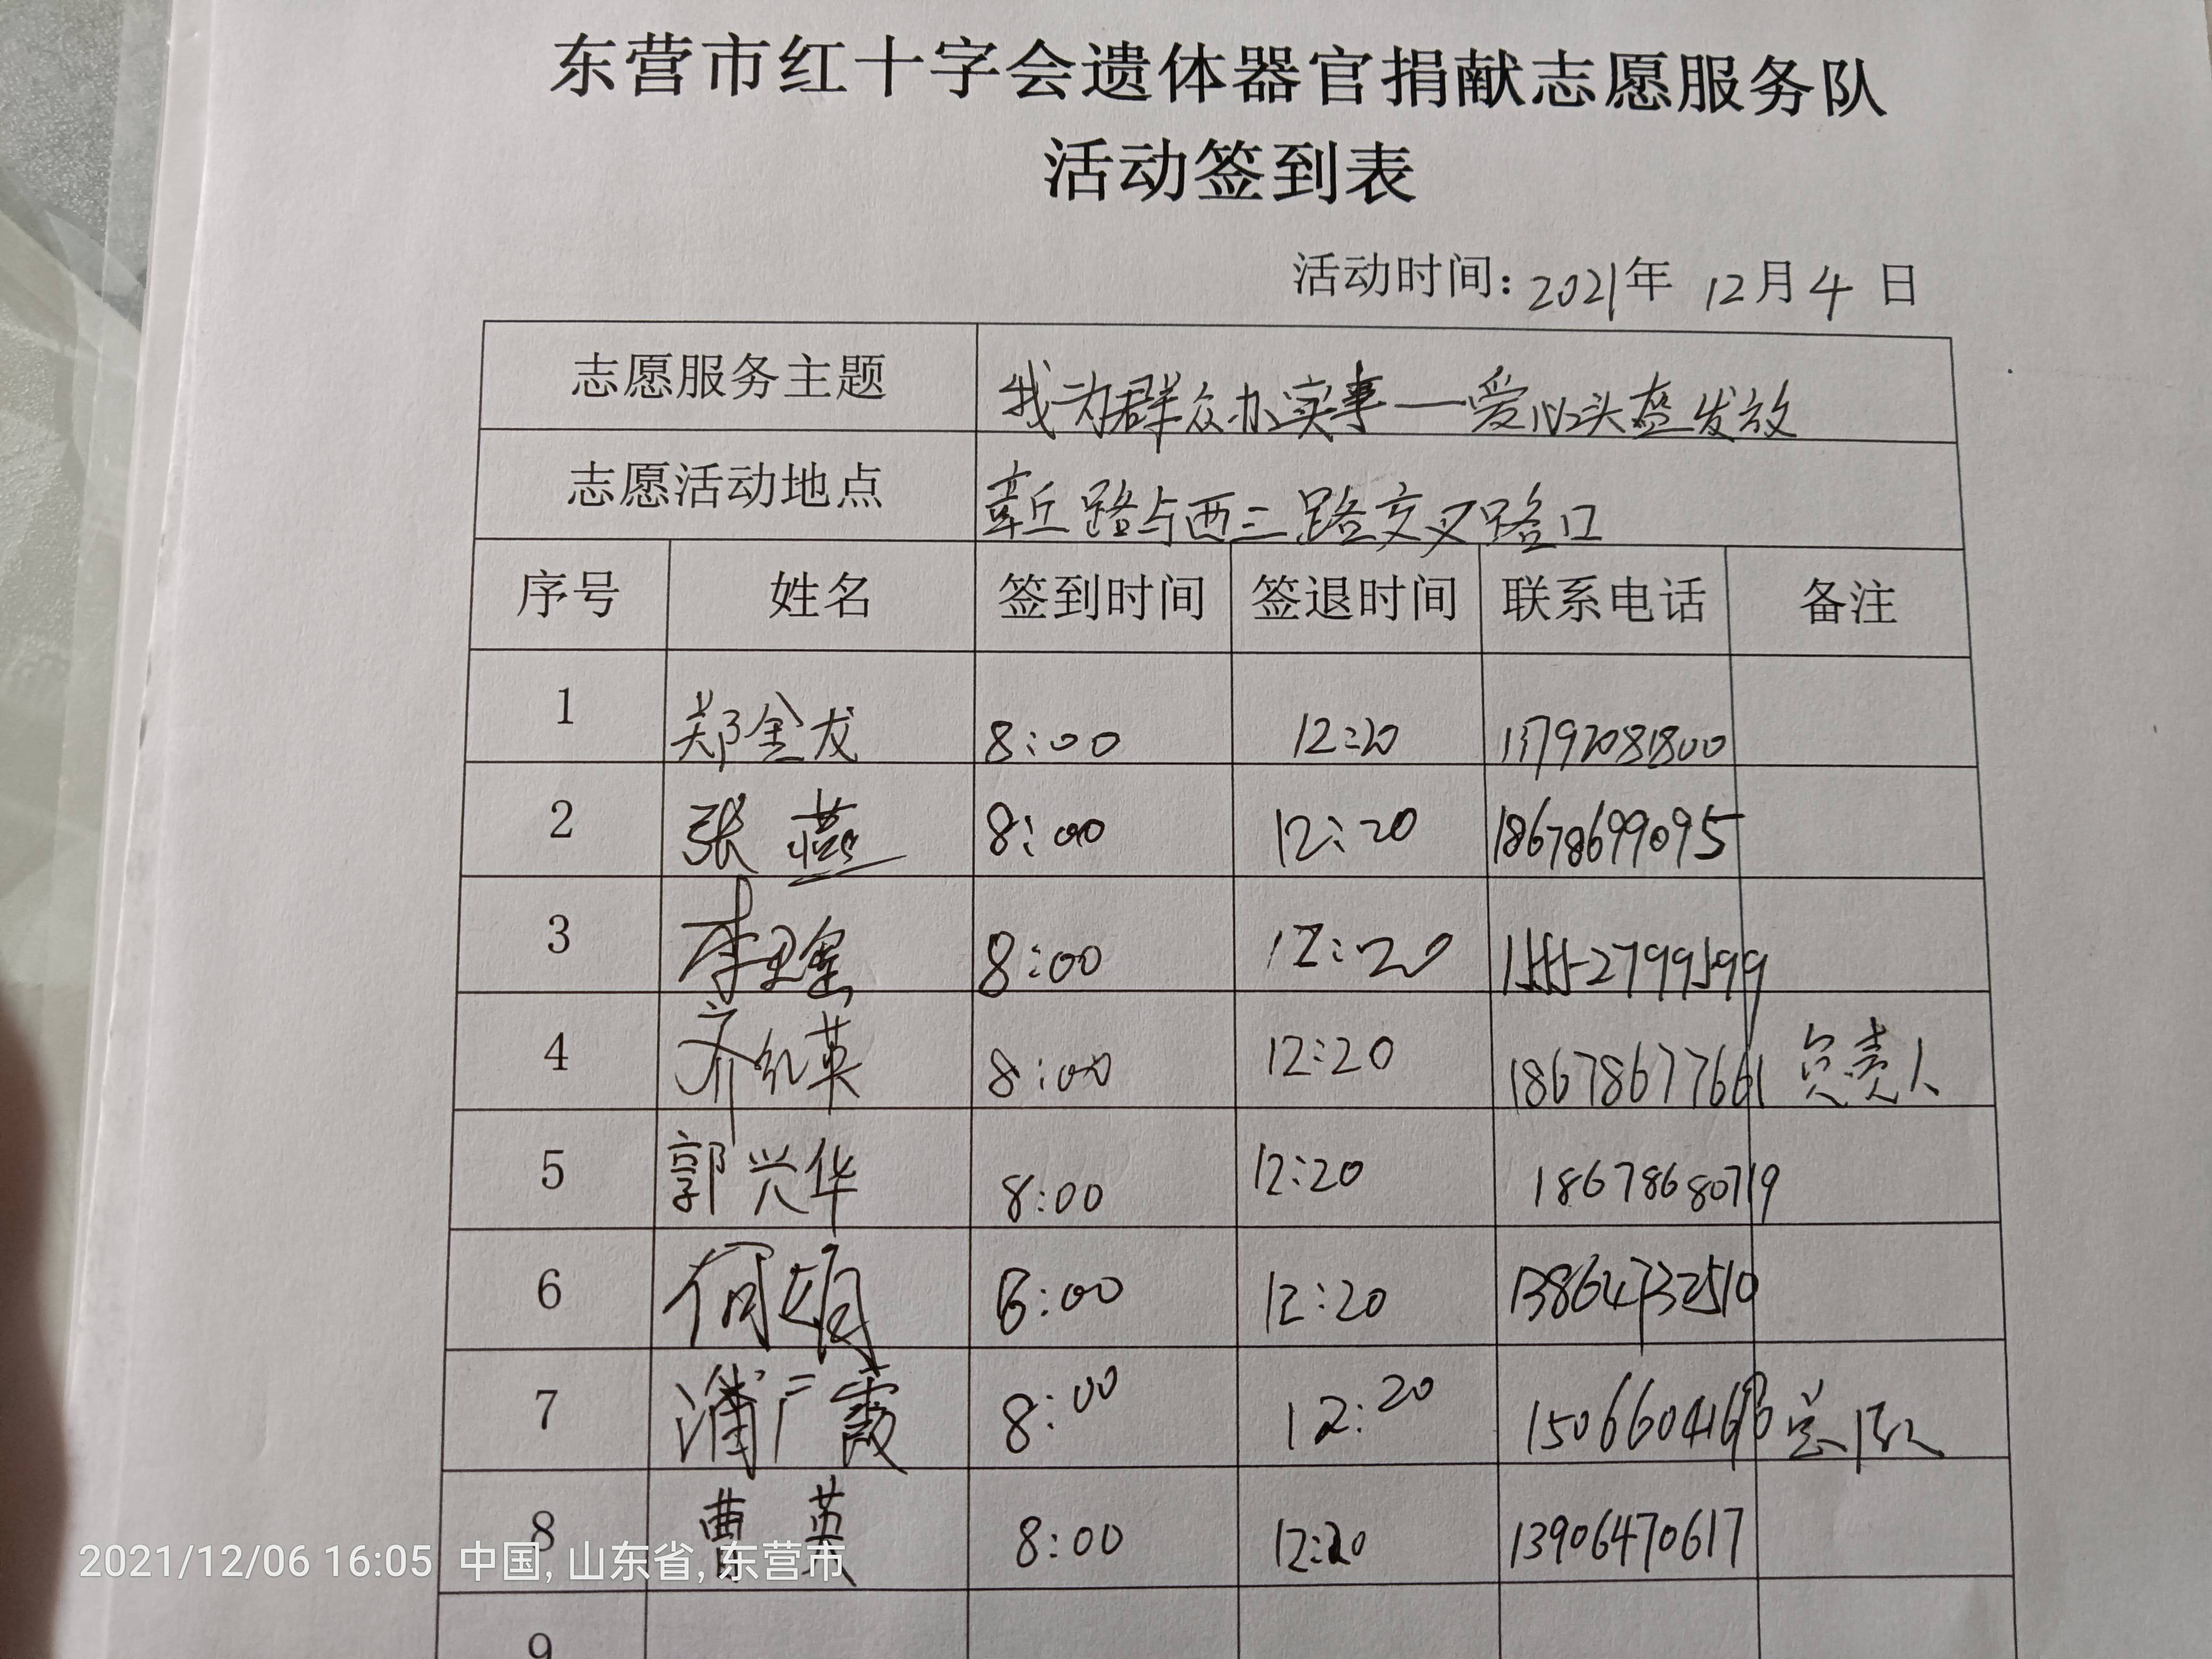 东营市红十字会遗体器官捐献志愿服务队
活动签到表
活动时间：2021年 12月4日
志愿服务主题 我为群众办实事——爱心头盔发放
志愿活动地点 章丘路与西三路交叉路口
序号 姓名 签到时间 签退时间 联系电话 备注
1 郑金龙 8:00 12:20 13792081800
2 张燕 8:00 12:20 18678699095
3 李 8:00 12:20
4 齐红英 8:00 12:20 18678677661 负责人
5 郭兴华 8:00 12:20 18678680719
6 何娟 8:00 12:20 13864732510
7 浦广霞 8:00 12:20
8 曹英 8:00 12:20 13906470617
9
2021/12/06 16:05 中国, 山东省, 东营市